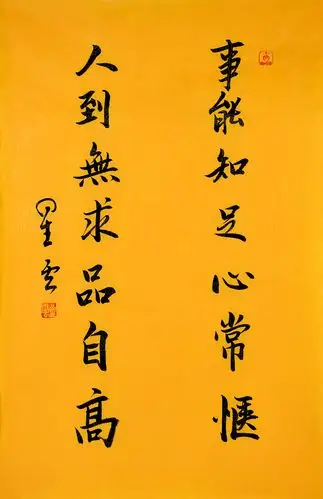 事能知足心常惬
人到無求品自高
星雲